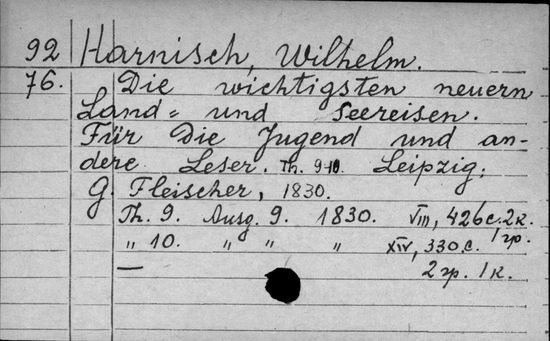 92 Harnisch, Wilhelm.
76. Die wichtigsten neuern
Land= und Seereisen.
Für die Jugend und an-
dere Leser. Th. 9-10. Leipzig,
G. Fleischer, 1830.
Th. 9. Ausg. 9. 1830. VIII, 426 c. 2 к.
„ 10. „ „ „ XIV, 330 c. 1 гр.
— 2 гр. 1 к.